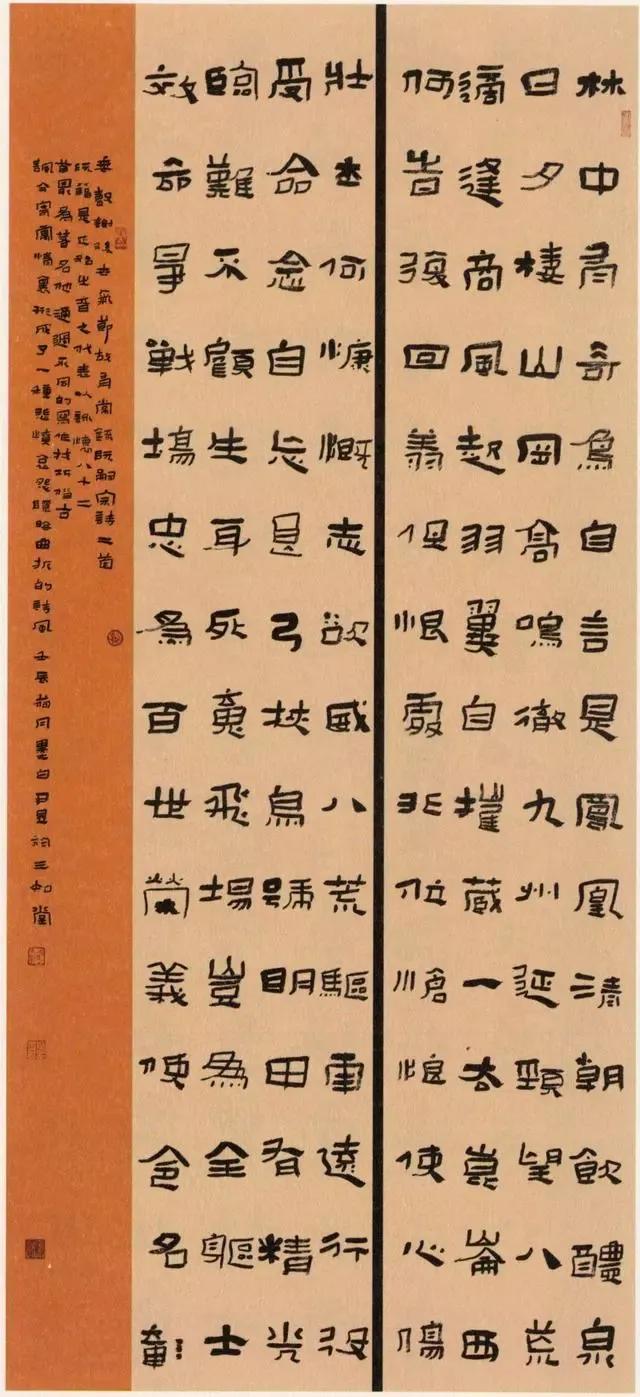 林中有奇鳥自言是鳳凰清朝飲醴泉
日夕棲山岡高鳴徹九州延頸望八荒
適逢商風起羽翼自摧藏一去崑崙西
何旹復回翔但恨處非位愴悢使心傷
壯士何慷慨志欲威八荒驅車遠行役
受命念自忘良弓挾烏號明甲有精光
臨難不顧生身死魂飛揚豈為全軀士
效命爭戰場忠為百世榮義使令名彰
垂聲謝後世氣節故有常錄阮嗣宗詩二首
阮籍是正始之音之代表以詠懷八十二
首最為著名他通過不同的寫作技巧借古
諷今寄寓情懷形成了一種悲憤哀怨隱晦曲折的詩風 壬辰菊月